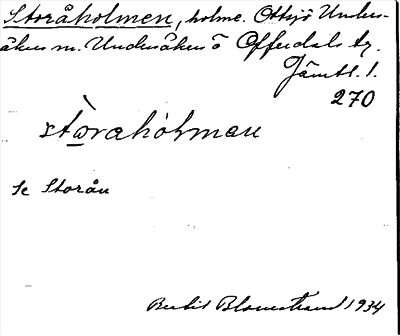 Storåholmen, holme. Ottsjö Unders-
åkers sn. Undersåkers o Offerdals tg.
Jämtl. l.
270
stòraho̍lmen
Se Storån
Bertil Blomstrand 1934